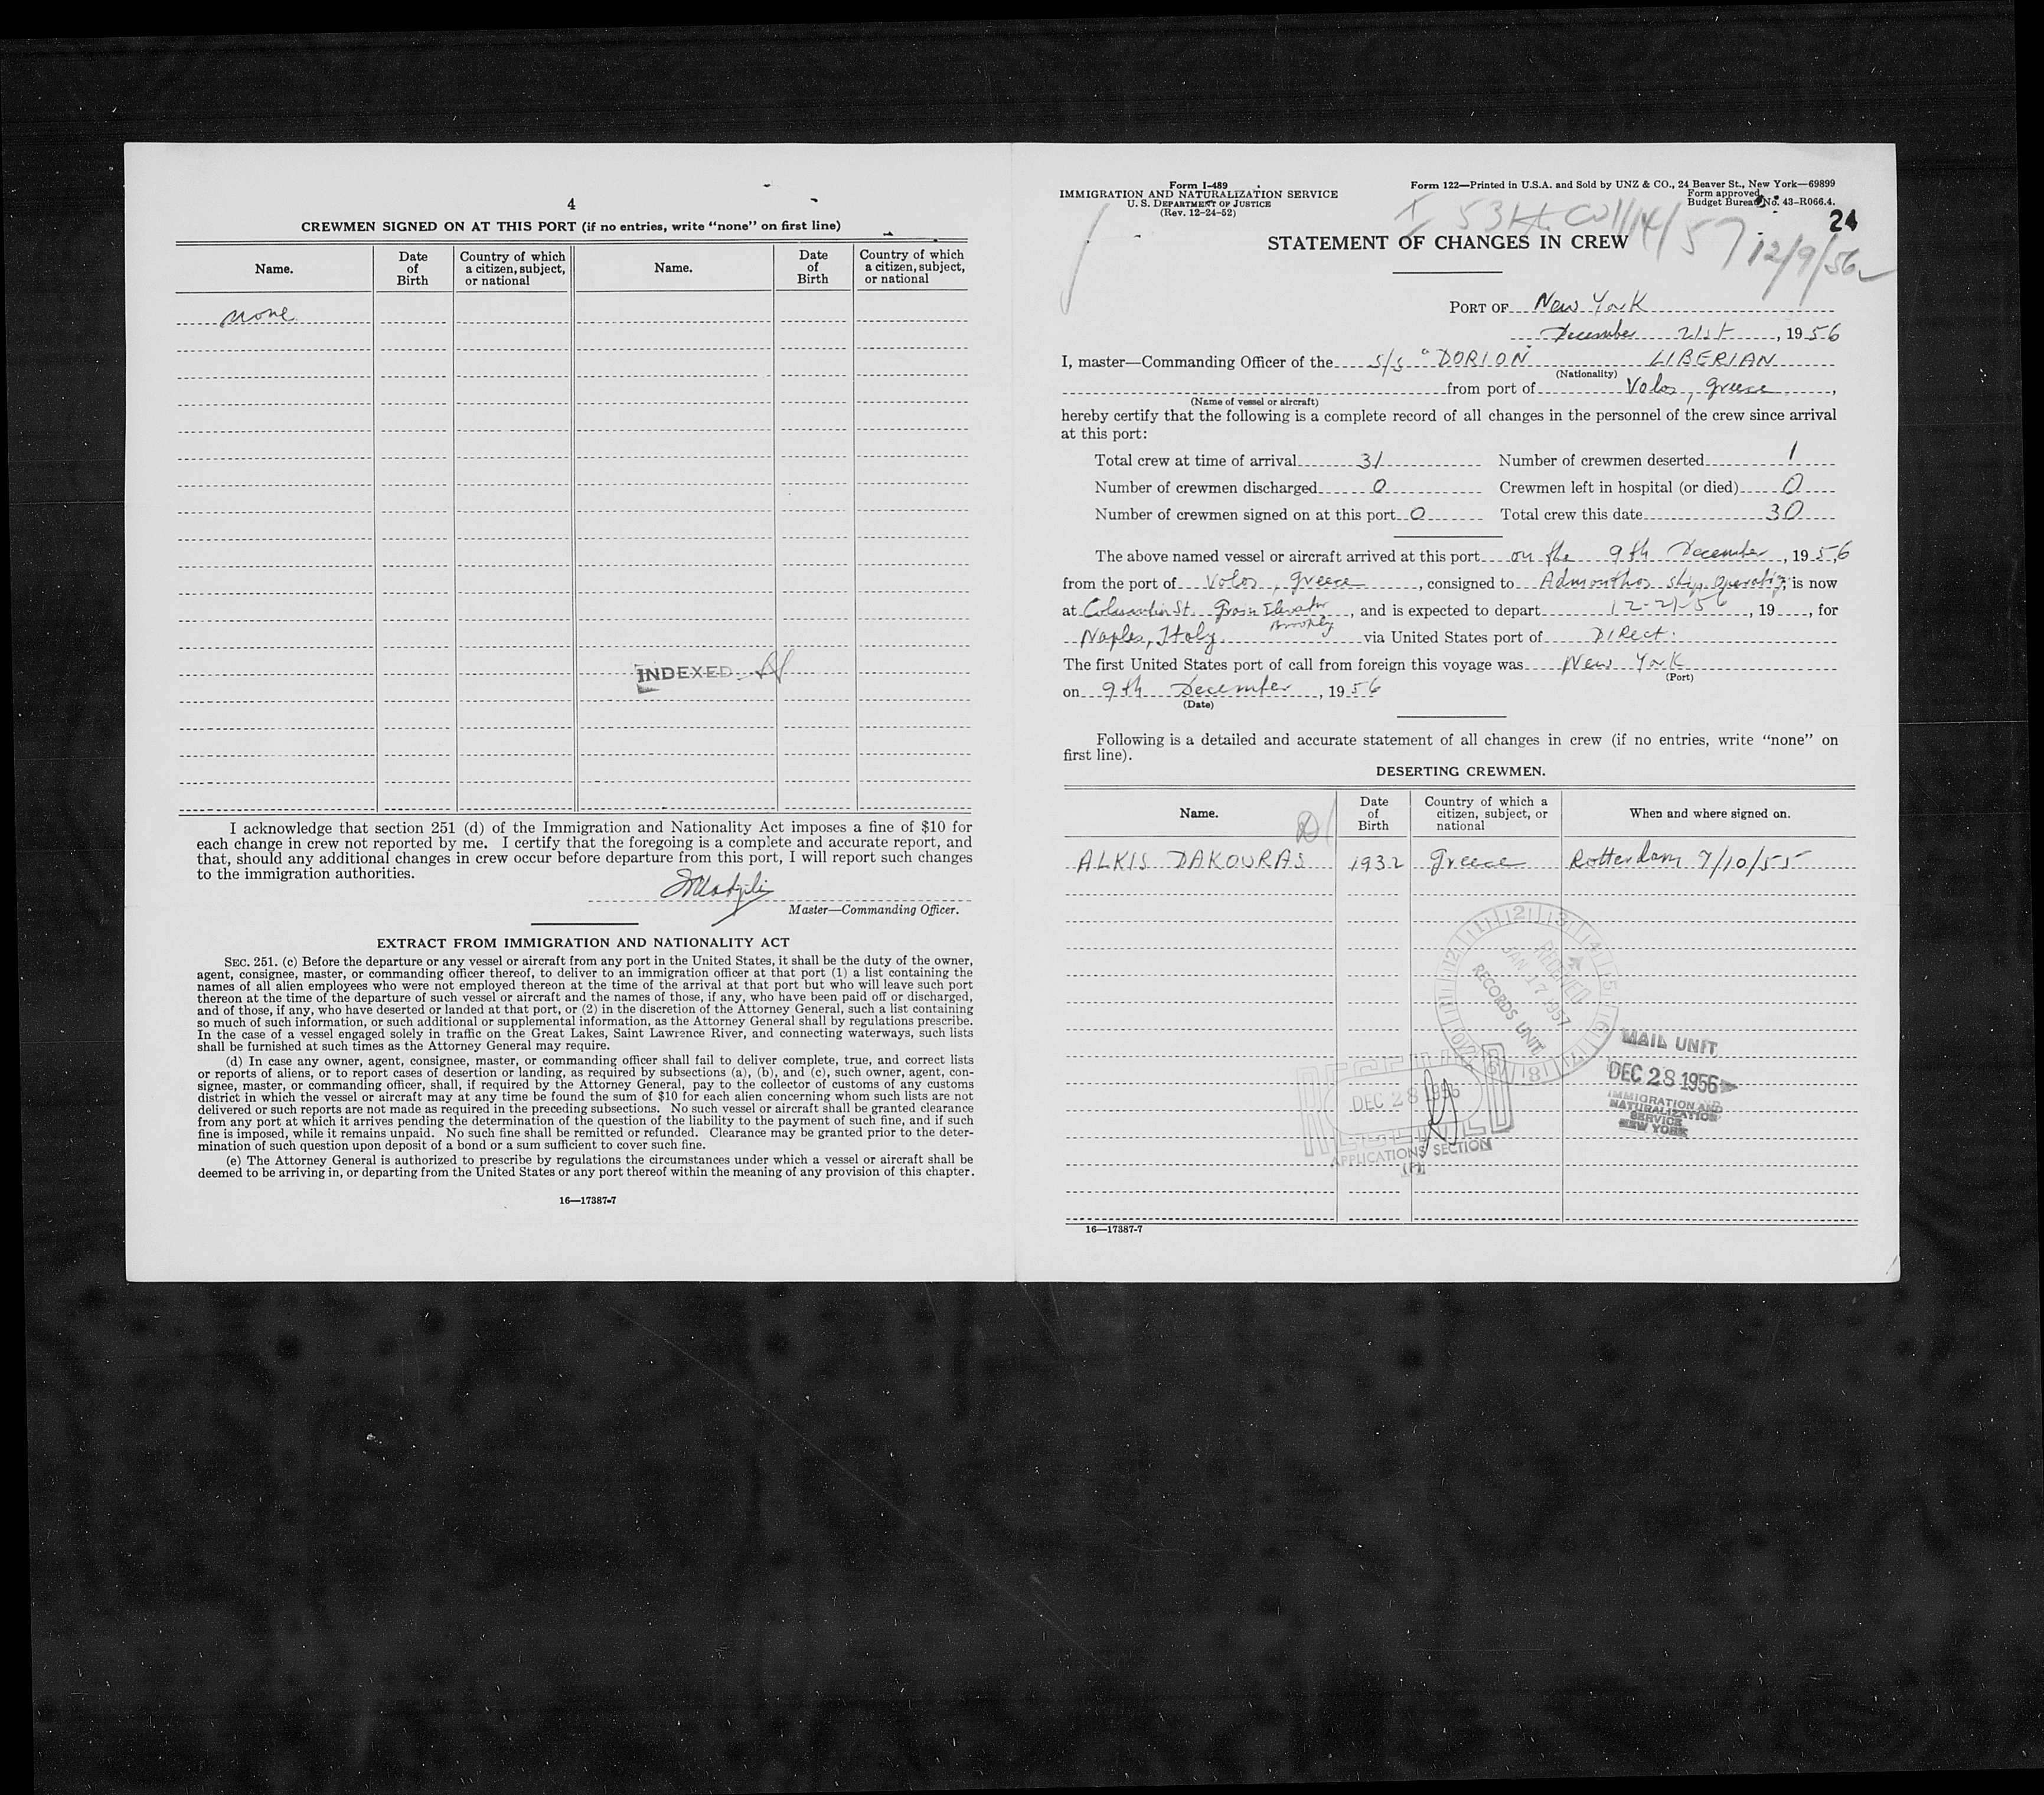 4
CREWMEN SIGNED ON AT THIS PORT (if no entries, write “none” on first line)
Name.
Date of Birth
Country of which a citizen, subject, or national
Name.
Date of Birth
Country of which a citizen, subject, or national
none
INDEXED
I acknowledge that section 251 (d) of the Immigration and Nationality Act imposes a fine of $10 for
each change in crew not reported by me. I certify that the foregoing is a complete and accurate report, and
that, should any additional changes in crew occur before departure from this port, I will report such changes
to the immigration authorities.
Master—Commanding Officer.
EXTRACT FROM IMMIGRATION AND NATIONALITY ACT
SEC. 251. (c) Before the departure or any vessel or aircraft from any port in the United States, it shall be the duty of the owner,
agent, consignee, master, or commanding officer thereof, to deliver to an immigration officer at that port (1) a list containing the
names of all alien employees who were not employed thereon at the time of the arrival at that port but who will leave such port
thereon at the time of the departure of such vessel or aircraft and the names of those, if any, who have been paid off or discharged,
and of those, if any, who have deserted or landed at that port, or (2) in the discretion of the Attorney General, such a list containing
so much of such information, or such additional or supplemental information, as the Attorney General shall by regulations prescribe.
In the case of a vessel engaged solely in traffic on the Great Lakes, Saint Lawrence River, and connecting waterways, such lists
shall be furnished at such times as the Attorney General may require.
(d) In case any owner, agent, consignee, master, or commanding officer shall fail to deliver complete, true, and correct lists
or reports of aliens, or to report cases of desertion or landing, as required by subsections (a), (b), and (c), such owner, agent, con-
signee, master, or commanding officer, shall, if required by the Attorney General, pay to the collector of customs of any customs
district in which the vessel or aircraft may at any time be found the sum of $10 for each alien concerning whom such lists are not
delivered or such reports are not made as required in the preceding subsections. No such vessel or aircraft shall be granted clearance
from any port at which it arrives pending the determination of the question of the liability to the payment of such fine, and if such
fine is imposed, while it remains unpaid. No such fine shall be remitted or refunded. Clearance may be granted prior to the deter-
mination of such question upon deposit of a bond or a sum sufficient to cover such fine.
(e) The Attorney General is authorized to prescribe by regulations the circumstances under which a vessel or aircraft shall be
deemed to be arriving in, or departing from the United States or any port thereof within the meaning of any provision of this chapter.
16—17387-7
Form I-489
IMMIGRATION AND NATURALIZATION SERVICE
U. S. DEPARTMENT OF JUSTICE
(Rev. 12-24-52)
Form 122—Printed in U.S.A. and Sold by UNZ & CO., 24 Beaver St., New York—69899
Form approved.
Budget Bureau No. 43-R066.4.
24
12/9/56
STATEMENT OF CHANGES IN CREW
PORT OF New York
December 21st, 1956
I, master—Commanding Officer of the s/s "DORION" LIBERIAN
(Nationality)
from port of Volos, Greece,
(Name of vessel or aircraft)
hereby certify that the following is a complete record of all changes in the personnel of the crew since arrival
at this port:
Total crew at time of arrival 31 Number of crewmen deserted 1
Number of crewmen discharged 0 Crewmen left in hospital (or died) 0
Number of crewmen signed on at this port 0 Total crew this date 30
The above named vessel or aircraft arrived at this port on the 9th December, 1956
from the port of Volos, Greece, consigned to Ship Operating, is now
at St. Grain Elevator Brooklyn, and is expected to depart 12-21-56, 19, for
Naples, Italy. via United States port of DIRect.
The first United States port of call from foreign this voyage was New York
(Port)
on 9th December, 1956
(Date)
Following is a detailed and accurate statement of all changes in crew (if no entries, write “none” on
first line).
DESERTING CREWMEN.
Name.
Date of Birth
Country of which a citizen, subject, or national
When and where signed on.
ALKIS DAKOURAS 1932 Greece Rotterdam 7/10/55
RECEIVED
JAN 17 1957
RECORDS UNIT
MAIL UNIT
DEC 28 1956
IMMIGRATION AND
NATURALIZATION
SERVICE
NEW YORK
RECEIVED
DEC 28 1956
APPLICATIONS SECTION
16—17387-7